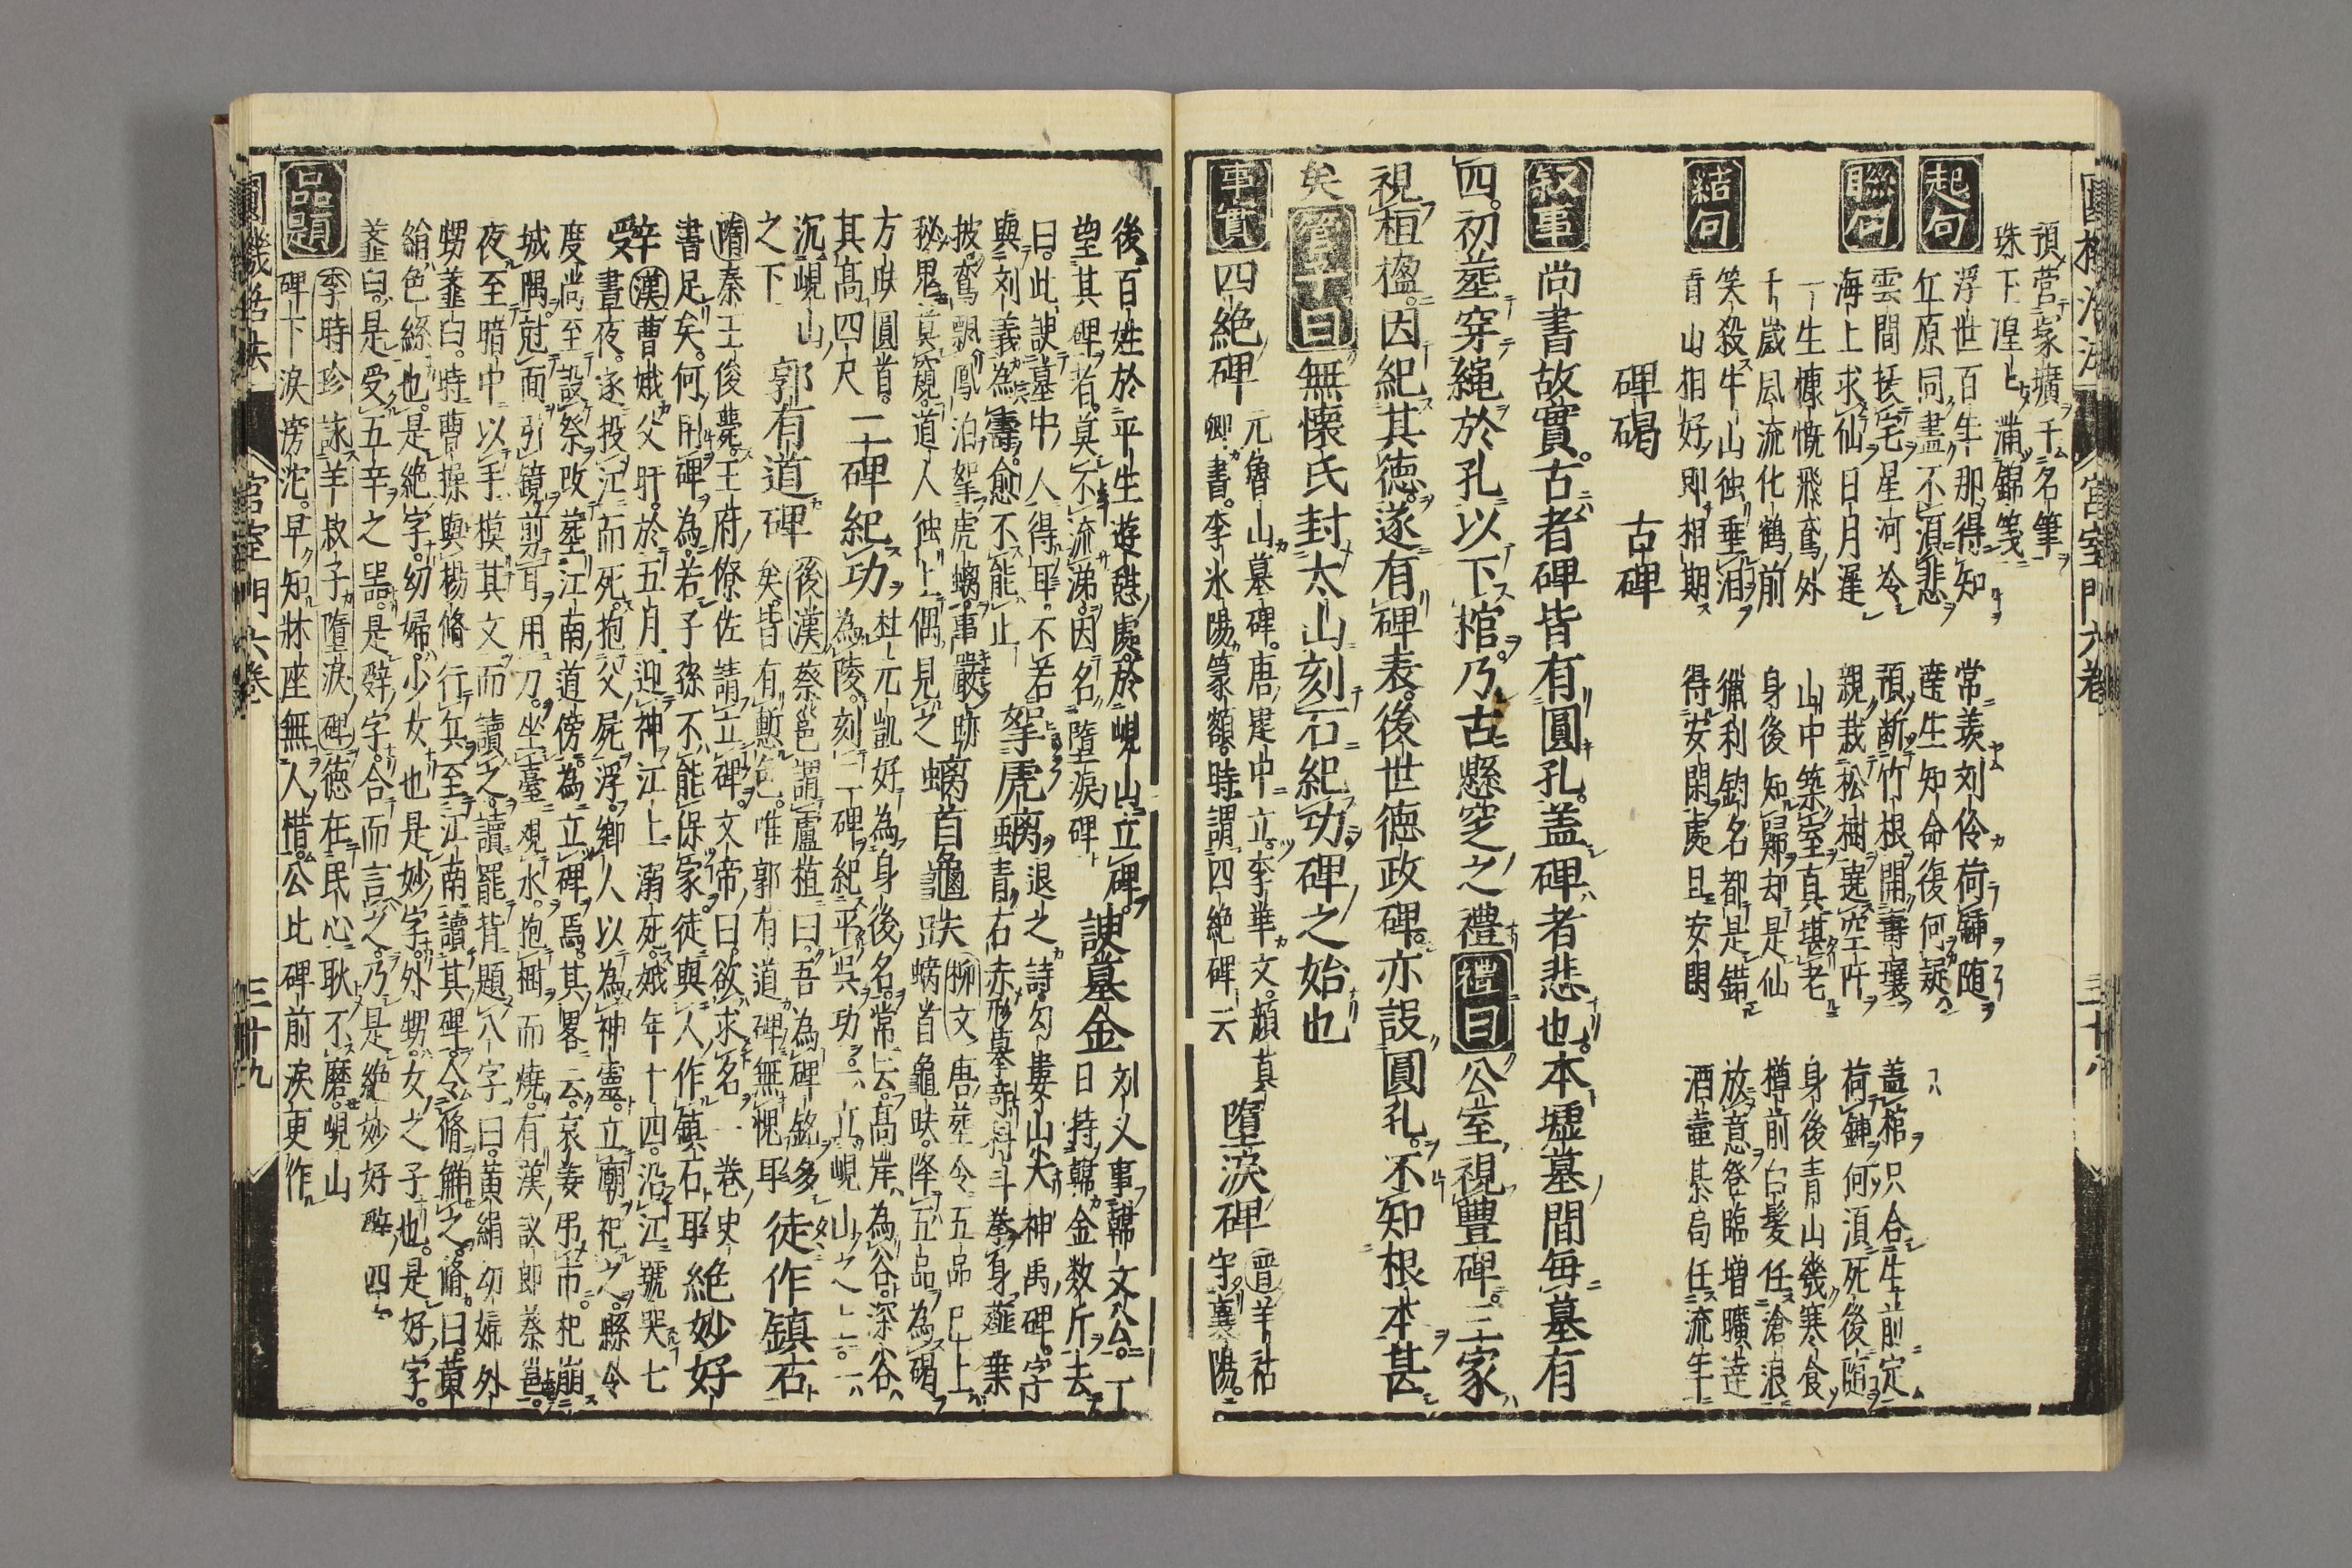 宮室門六卷 三十八
預营塚壙千名筆
珠下 滿錦笺
起句
浮世百年那得知
丘原同盡不湏悲
常羡刘伶荷鍤随
達生知命復何疑
盖棺只合生前定
荷鍤何湏死後随
聯句
雲間撫宅星河冷
海上求仙日月遅
預断竹根開壽壤
親栽松樹遶空阡
一生慷慨飛鳶外
千歳風流化鶴前
山中築室真堪老
身後知歸却是仙
身後青山幾寒食
樽前白髪任滄浪
結句
笑殺牛山独垂泪
青山相好則相期
獵利釣名都是錯
得安閑處且安閑
放意登臨増曠達
酒壷棊局任流年
碑碣 古碑
叙事
尚書故實古者碑皆有圓孔盖碑者悲也本墟墓間毎墓有
四初葬穿繩於孔以下棺乃古懸窆之禮禮曰公室視豐碑三家
視桓楹因紀其徳遂有碑表後世徳政碑亦設圓孔不知根本甚
矣 無懷氏封太山刻石紀功碑之始也
事實
四絶碑 元魯山墓碑唐 中立李華文顔真
卿書李氷陽篆額時謂四絶碑云
墮淚碑 晉羊祜
守襄陽
後百姓於平生遊憩處於峴山立碑
望其碑者莫不流涕因名墮淚碑
諛墓金 刘义事韓文公一
日持韓金数斤去
曰此諛墓中人得耳不若
與刘義為壽愈不能止
拏虎螭 退之詩勾婁山尖神禹碑字
青石赤形摹竒科斗拳身薤葉
披鸞飄鳳泊拏虎螭事嚴跡
秘鬼莫窺道人独上偶見之
螭首龜趺 柳文唐葬令五品已上
螭首龜趺降五品為碣
方趺圓首
其高四尺
二碑紀功 杜元凱好為身後名常云高岸為谷深谷
為陵刻二碑紀平呉功一立峴山之上一
沉峴山
之下
郭有道碑 後漢蔡邕謂盧植曰吾為碑銘多
矣皆有慙色唯郭有道碑無愧耳
徒作鎮石
隋秦王俊薨王府僚佐請立碑文帝曰欲求名一卷史
書足矣何用碑為若子孫不能保家徒與人作鎮石耳
絶妙好
辛受 漢曹娥父盱於五月迎神江上溺死娥年十四沿江號哭七
晝夜遂投江而死抱父屍浮鄉人以為神靈立廟祀之縣令
度尚至設祭改葬江南道傍為立碑焉其畧云哀姜吊市杞崩
城隅剋面引鏡剪耳用刀坐臺覌水抱樹而燒有漢議郎蔡邕
夜至暗中以手模其文而讀之讀罷背題八字曰黄絹幼婦外
甥虀臼時曹操與楊脩行兵至江南讀其碑令脩觧之脩曰黄
絹色絲也是絶字幼婦少女也是妙字外甥女之子也是好字
虀臼是受五辛之噐是辤字合而言之乃是絶妙好辤四
品題
季時珍詠羊叔子墮淚碑徳在民心耿不磨峴山
碑下淚滂沱早知牀座無人惜公此碑前淚更作
宮室門六卷 三十九